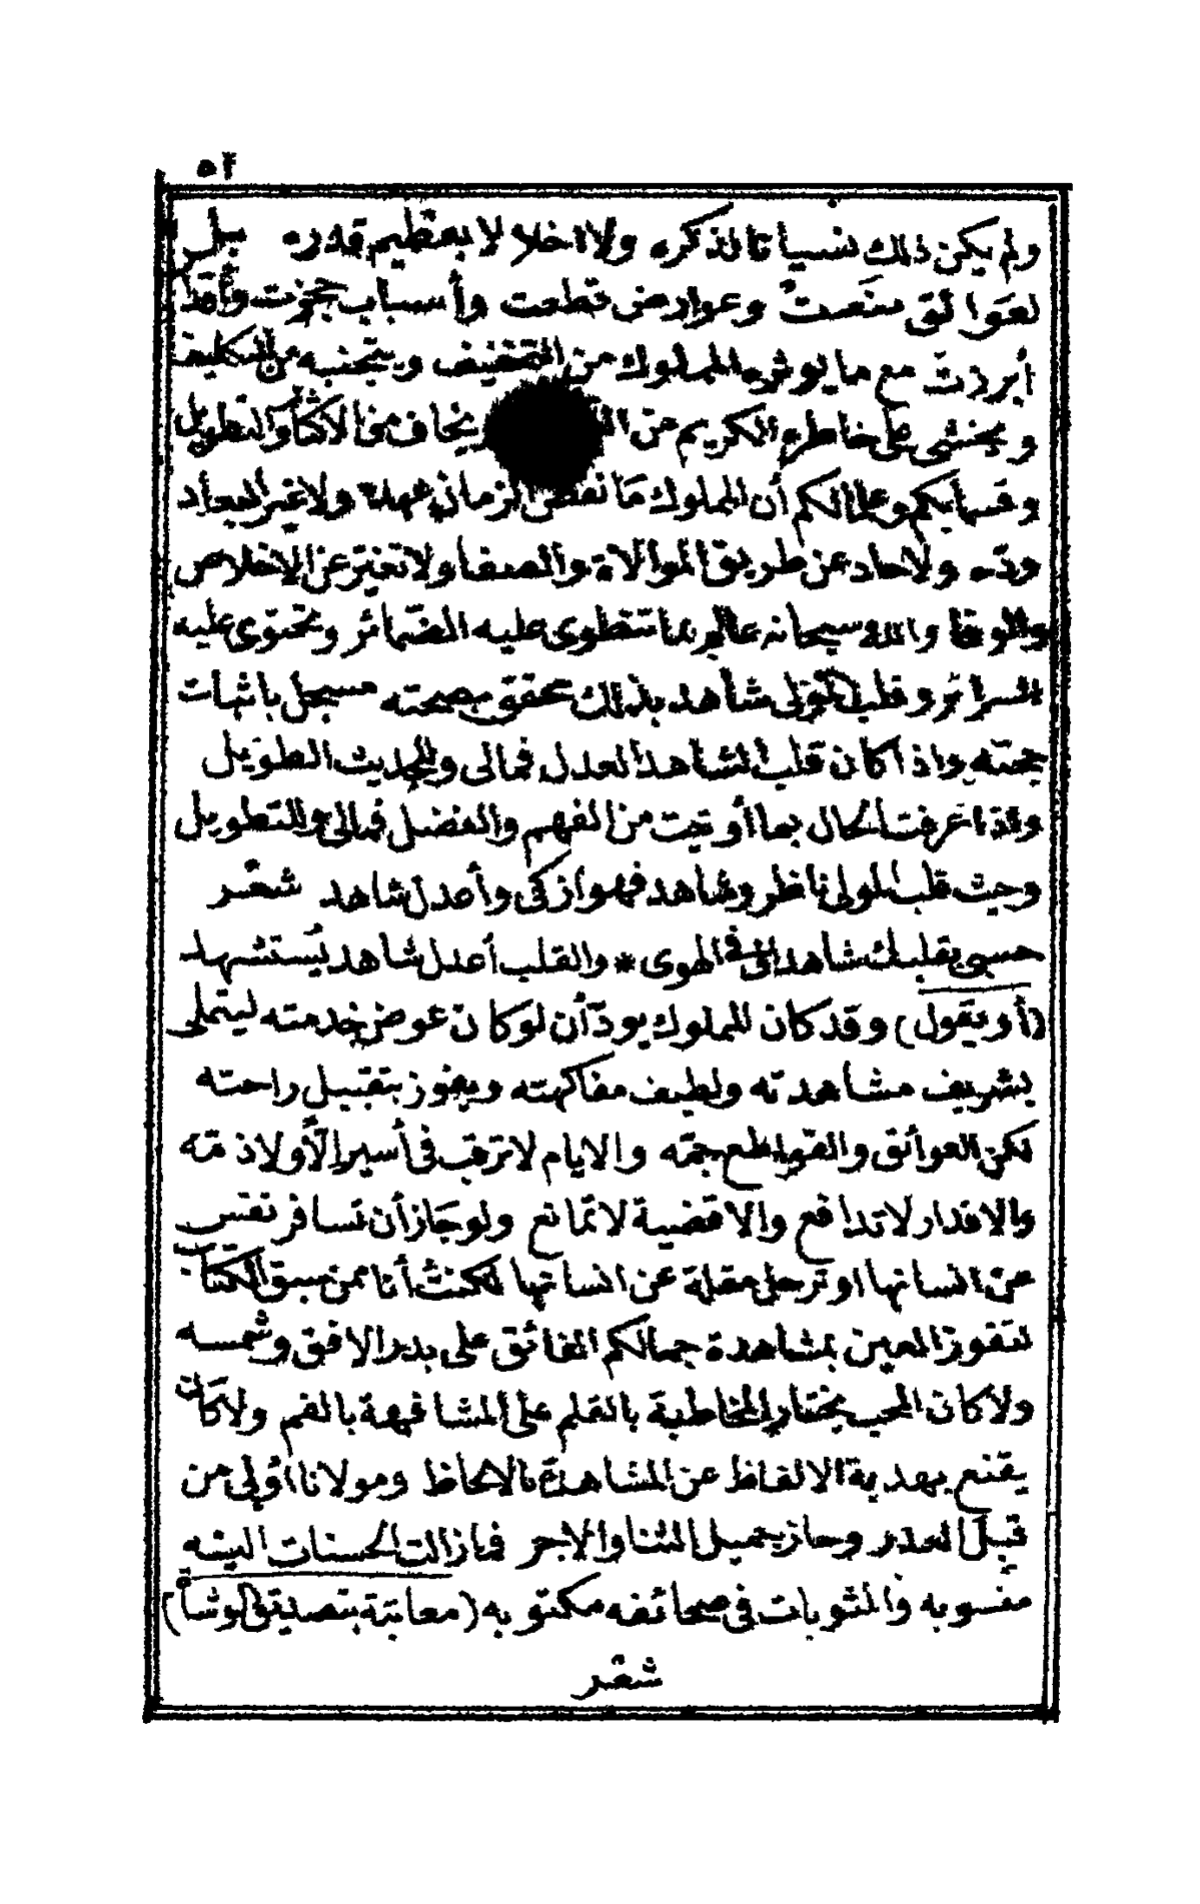 ٥٢
ولم يكن ذلك نسيانا لذكره ولا اخلالا بعظيم قدره بل
لعوائق منعت وعوارض قطعت وأسباب حجزت
أبرزت مع ما يوثره المملوك من التخفيف ويتجنبه من التكليف
ويخشى على خاطره الكريم من ويخاف من الاكثار والتطويل
وقسما بكم وعلاكم أن المملوك ما نقض الزمان عهده ولا غير البعاد
وده ولا حاد عن طريق الموالاة والصفا ولا تغير عن الاخلاص
والوفا والله سبحانه عالم بما تنطوى عليه الضمائر وتحتوى عليه
السرائر وقلب المولى شاهد بذلك محقق بصحته مسجل باثبات
حجته واذا كان قلب الشاهد العدل فمالى والحديث الطويل
واذا عرفت الحال بما أوتيت من الفهم والفضل فمالى والتطويل
وحيث قلب المولى ناظر وشاهد فهو ازكى وأعدل شاهد شعر
حسبى بقلبك شاهدا لى فى الهوى * والقلب أعدل شاهد يستشهد
(أو يقول) وقد كان المملوك يود أن لو كان عوض خدمته ليتملى
بشريف مشاهدته ولطيف مفاكهته ويفوز بتقبيل راحته
لكن العوائق والقواطع جمه والايام لا ترقب فى أسير الا ولا ذمه
والاقدار لا تدافع والاقضية لا تمانع ولو جاز أن تسافر نفس
عن انسانها او ترحل مقلة عن انسانها لكنت أنا ممن سبق الكتاب
لتفوز العين بمشاهدة جمالكم الفائق على بدر الافق وشمسه
ولا كان المحب يختار المخاطبة بالقلم على المشافهة بالفم ولا كان
يقنع بهدية الالفاظ عن المشاهدة بالالحاظ ومولانا أولى من
قبل العذر وحاز بجميل الثنا والاجر فما زالت الحسنات اليه
منسوبه والمثوبات فى صحائفه مكتوبه (معاتبة بتصديق الوشاة)
شعر